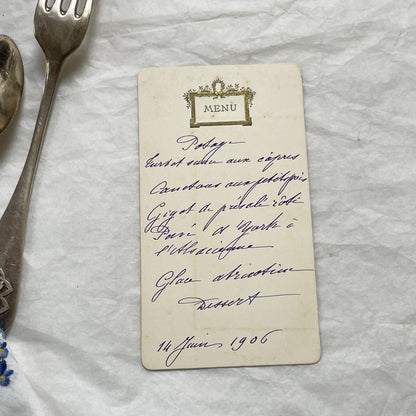 MENU
Potage
Turbot sauce aux câpres
Canetons aux petits pois
Gigot de présalé rôti
d'York à
l'Alsacienne
Glace
Dessert
14 Juin 1906